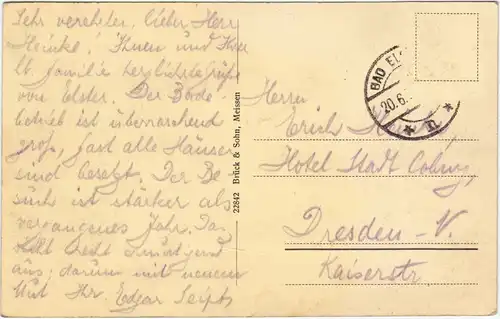 Sehr verehrter, lieber Herr
Heinke! Ihnen und Ihrer
lb. Familie herzlichste Grüße
von Elster. Der Bade-
betrieb ist überraschend
groß, fast alle Häuser
sind besetzt. Der Be-
such ist stärker als
vergangenes Jahr. Das
sieht recht ermutigend
aus; darum mit neuem
Mut Ihr Edgar Seipt
22842 Brück & Sohn, Meissen
BAD ELS
20.6.
Herrn
Erich
Hotel Stadt Coburg,
Dresden-N.
Kaiserstr